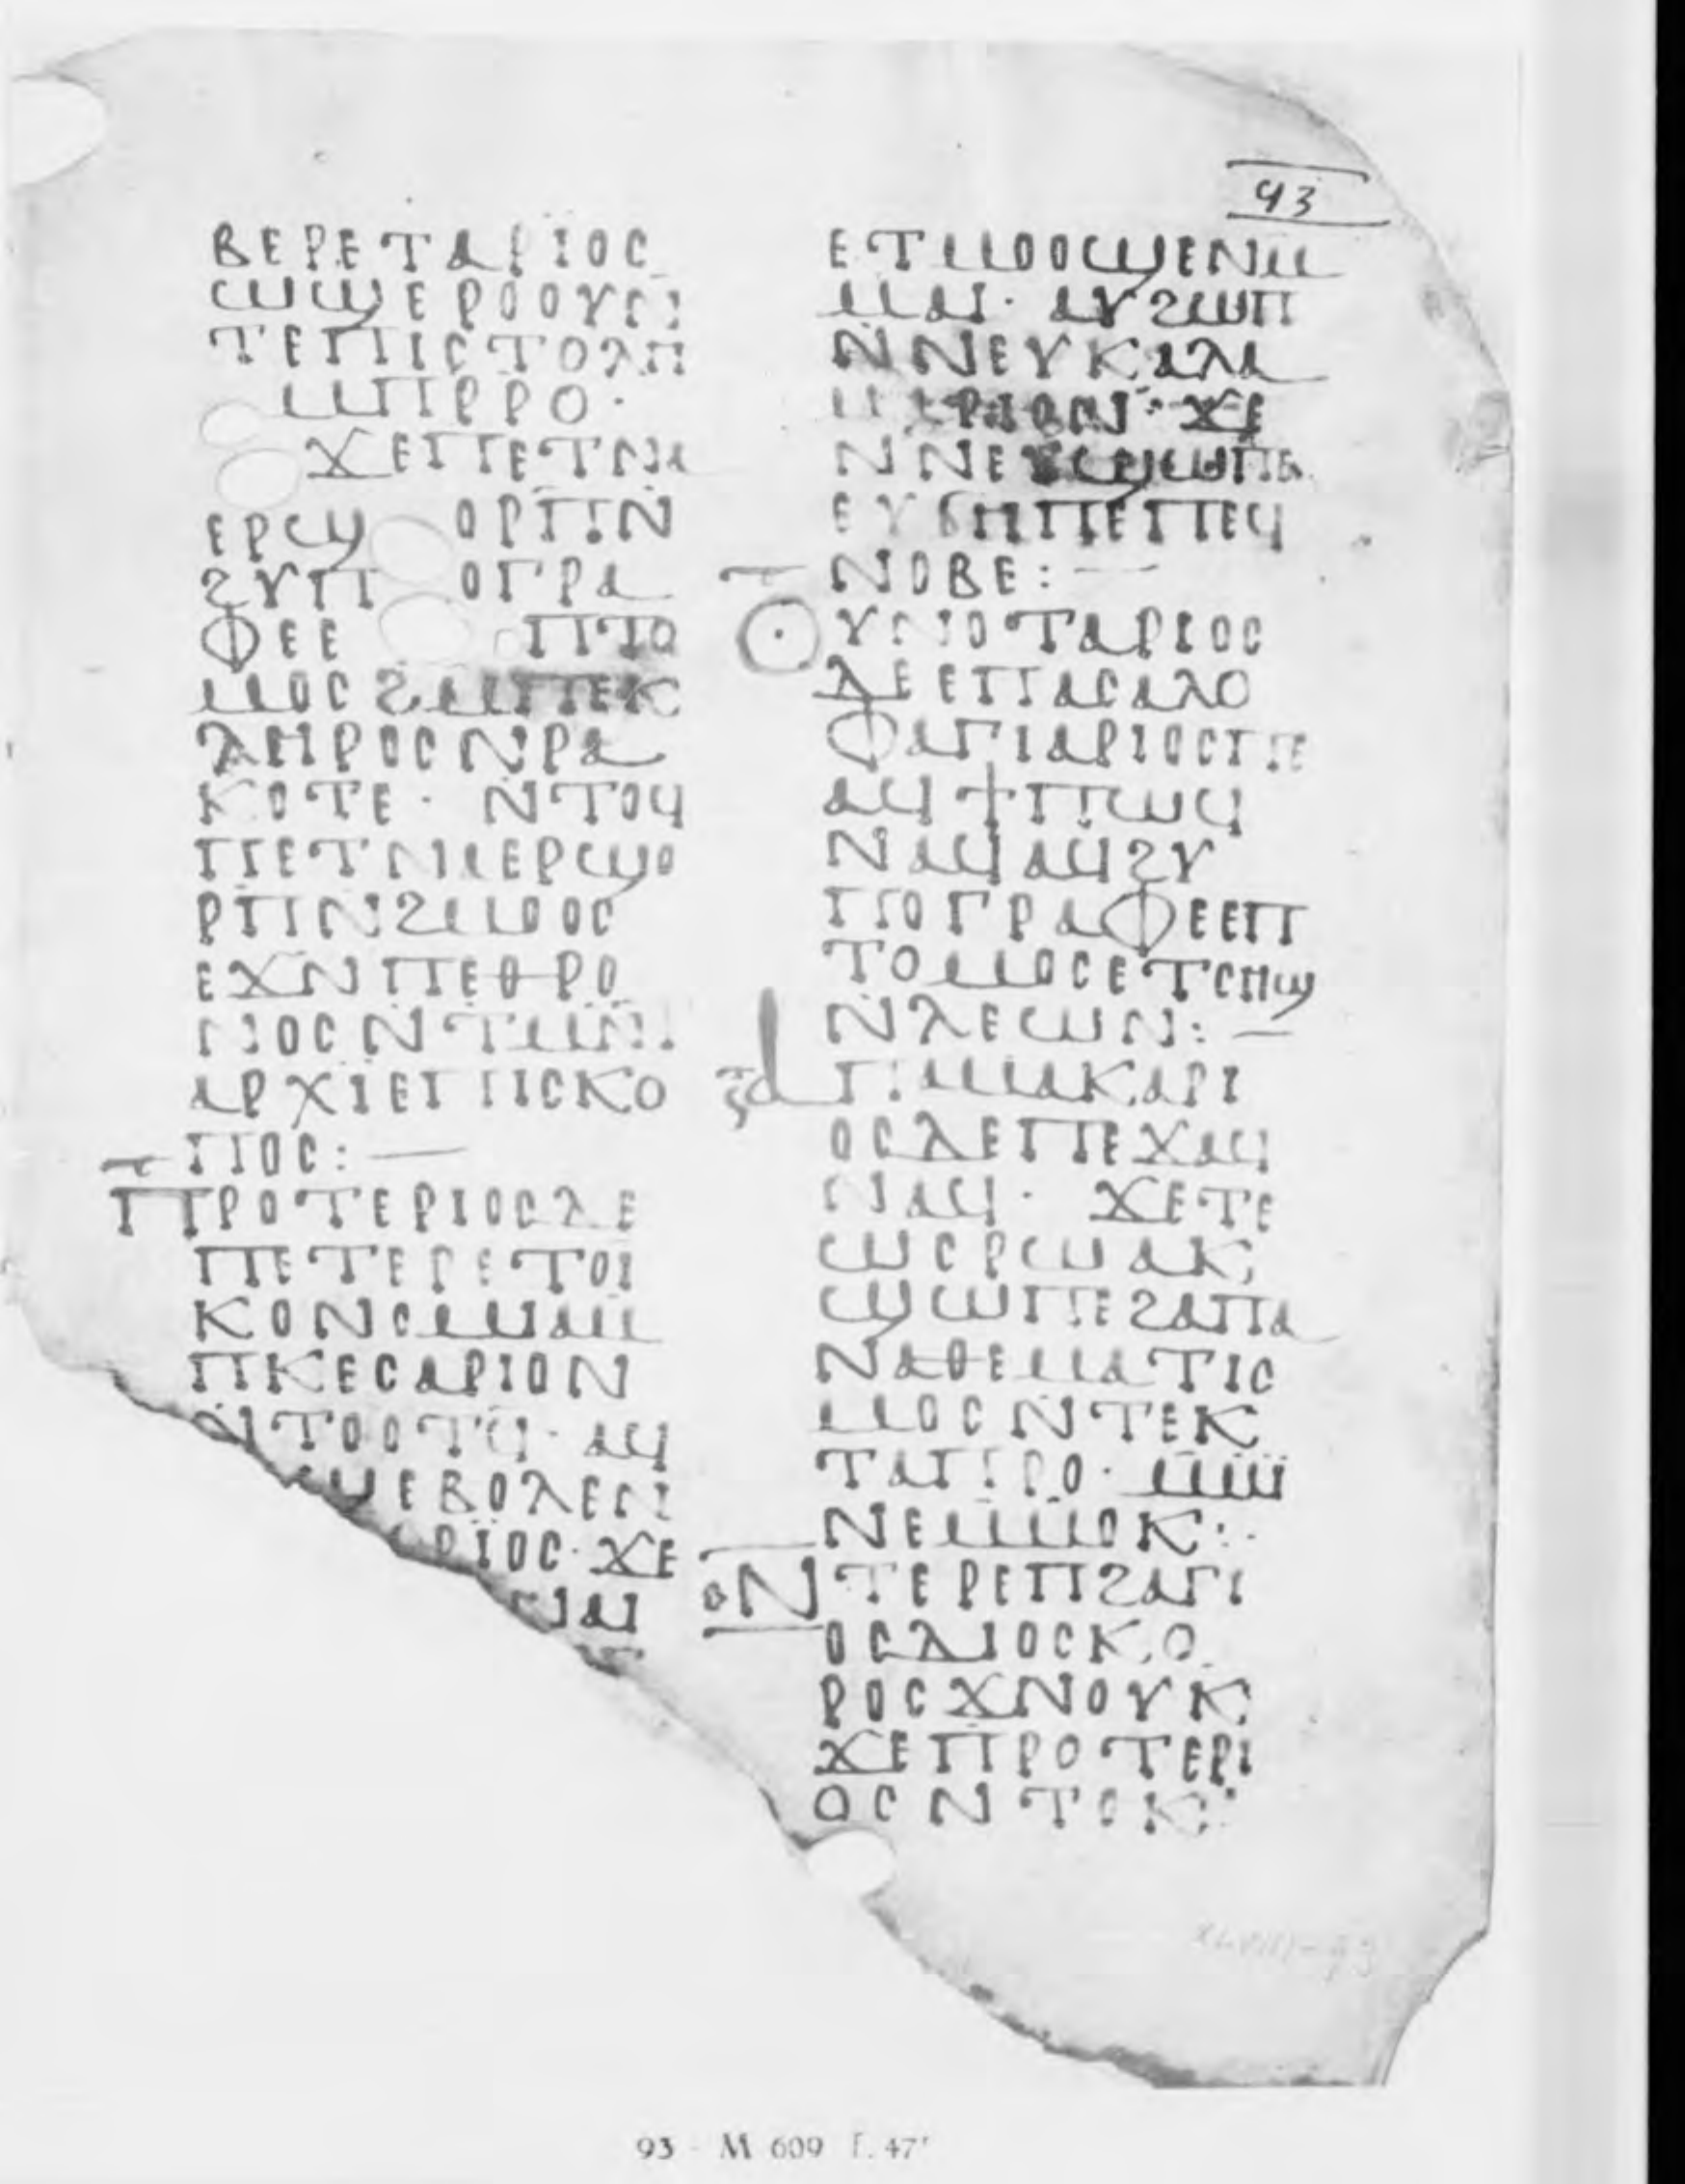 93
ⲃⲉⲣⲉⲧⲁⲣⲓⲟⲥ
ⲱϣⲉⲣⲟⲟⲩⲛ
ⲧⲉⲡⲓⲥⲧⲟⲗⲏ
ⲙⲡⲣⲣⲟ·
ϫⲉⲡⲉⲧⲛⲁ
ⲉⲣϣ ⲟⲣⲡⲛ̄
ϩⲩⲡ ⲟⲅⲣⲁ
ⲫⲉⲉ ⲡⲧⲟ
ⲙⲟⲥϩⲙⲡⲉⲕ
ⲗⲏⲣⲟⲥⲛⲣⲁ
ⲕⲟⲧⲉ· ⲛ̄ⲧⲟϥ
ⲡⲉⲧⲛⲁⲉⲣϣⲟ
ⲣⲡⲛϩⲙⲟⲟⲥ
ⲉϫⲛⲡⲉⲑⲣⲟ
ⲛⲟⲥⲛ̄ⲧⲙⲛ̄ⲧ
ⲁⲣⲭⲓⲉⲡⲓⲥⲕⲟ
ⲡⲟⲥ:—
ⲡⲣⲟⲧⲉⲣⲓⲟⲥⲇⲉ
ⲡⲉⲧⲉⲣⲉⲧⲟⲓ
ⲕⲟⲛⲟⲙⲓⲁⲙ
ⲡⲕⲉⲥⲁⲣⲓⲟⲛ
ⲛ̄ⲧⲟⲟⲧϥ· ⲁϥ
ϣⲉⲃⲟⲗⲉⲛ
ⲣⲓⲟⲥ· ϫⲉ
ⲛⲁⲓ
ⲉⲧⲙⲟⲟϣⲉⲛⲙ
ⲙⲁⲓ· ⲁⲩϩⲱⲡ
ⲛ̄ⲛⲉⲩⲕⲁⲗⲁ
ⲙⲁⲣⲓⲟⲛ· ϫⲉ
ⲛⲛⲉⲩϣⲱⲡⲉ
ⲉⲩϭⲏⲡⲉⲡⲉϥ
ⲛⲟⲃⲉ:—
ⲟⲩⲛⲟⲧⲁⲣⲓⲟⲥ
ⲇⲉⲉⲡⲁⲥⲁⲗⲟ
ⲫⲁⲅⲓⲁⲣⲓⲟⲥⲡⲉ
ⲁϥϯⲡⲱϥ
ⲛⲁϥⲁϥϩⲩ
ⲡⲟⲅⲣⲁⲫⲉⲉⲡ
ⲧⲟⲙⲟⲥⲉⲧⲥⲏϣ
ⲛ̄ⲗⲉⲱⲛ:—
ⲁⲡⲙⲁⲕⲁⲣⲓ
ⲟⲥⲇⲉⲡⲉϫⲁϥ
ⲛⲁϥ· ϫⲉⲧⲉ
ⲱⲥⲣⲱⲁⲕ
ϣⲱⲡⲉϩⲁⲡⲁ
ⲛⲁⲑⲉⲙⲁⲧⲓⲥ
ⲙⲟⲥⲛ̄ⲧⲉⲕ
ⲧⲁⲡⲣⲟ· ⲙⲙⲓ
ⲛⲉⲙⲙⲟⲕ:·
ⲛⲧⲉⲣⲉⲡϩⲁⲅⲓ
ⲟⲥⲇⲓⲟⲥⲕⲟ
ⲣⲟⲥϫⲛⲟⲩⲕ
ϫⲉⲡⲣⲟⲧⲉⲣⲓ
ⲟⲥⲛⲧⲟⲕ·
93 - M 609 f. 47ʳ